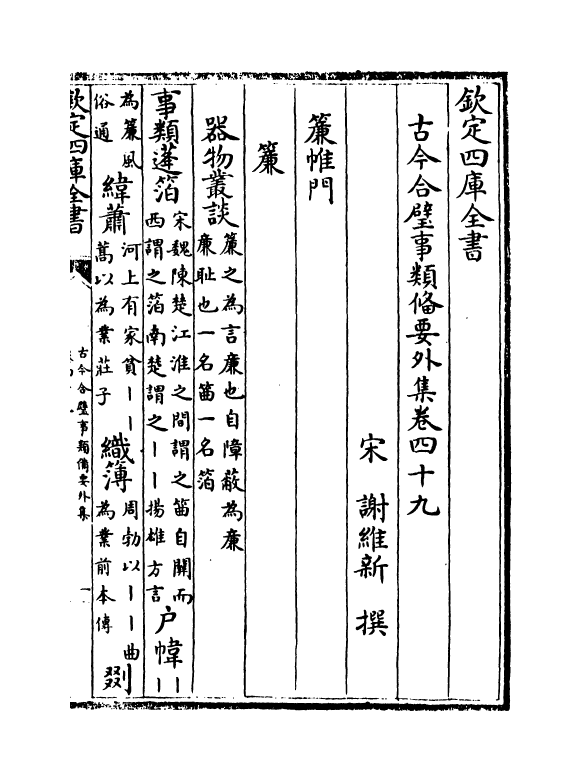 欽定四庫全書
古今合璧事類備要外集卷四十九
宋 謝維新 撰
簾帷門
簾
器物叢談簾之為言廉也自障蔽為廉
廉耻也一名箔一名箔
事類蓬箔宋魏陳楚江淮之間謂之笛自關而
西謂之箔南楚謂之丨丨揚雄方言户幃丨丨
為簾風
俗通緯蕭河上有家貧丨丨
蒿以為業莊子織簿周勃以丨丨曲
為業前本傳
欽定四庫全書
古今合璧事類備要外集